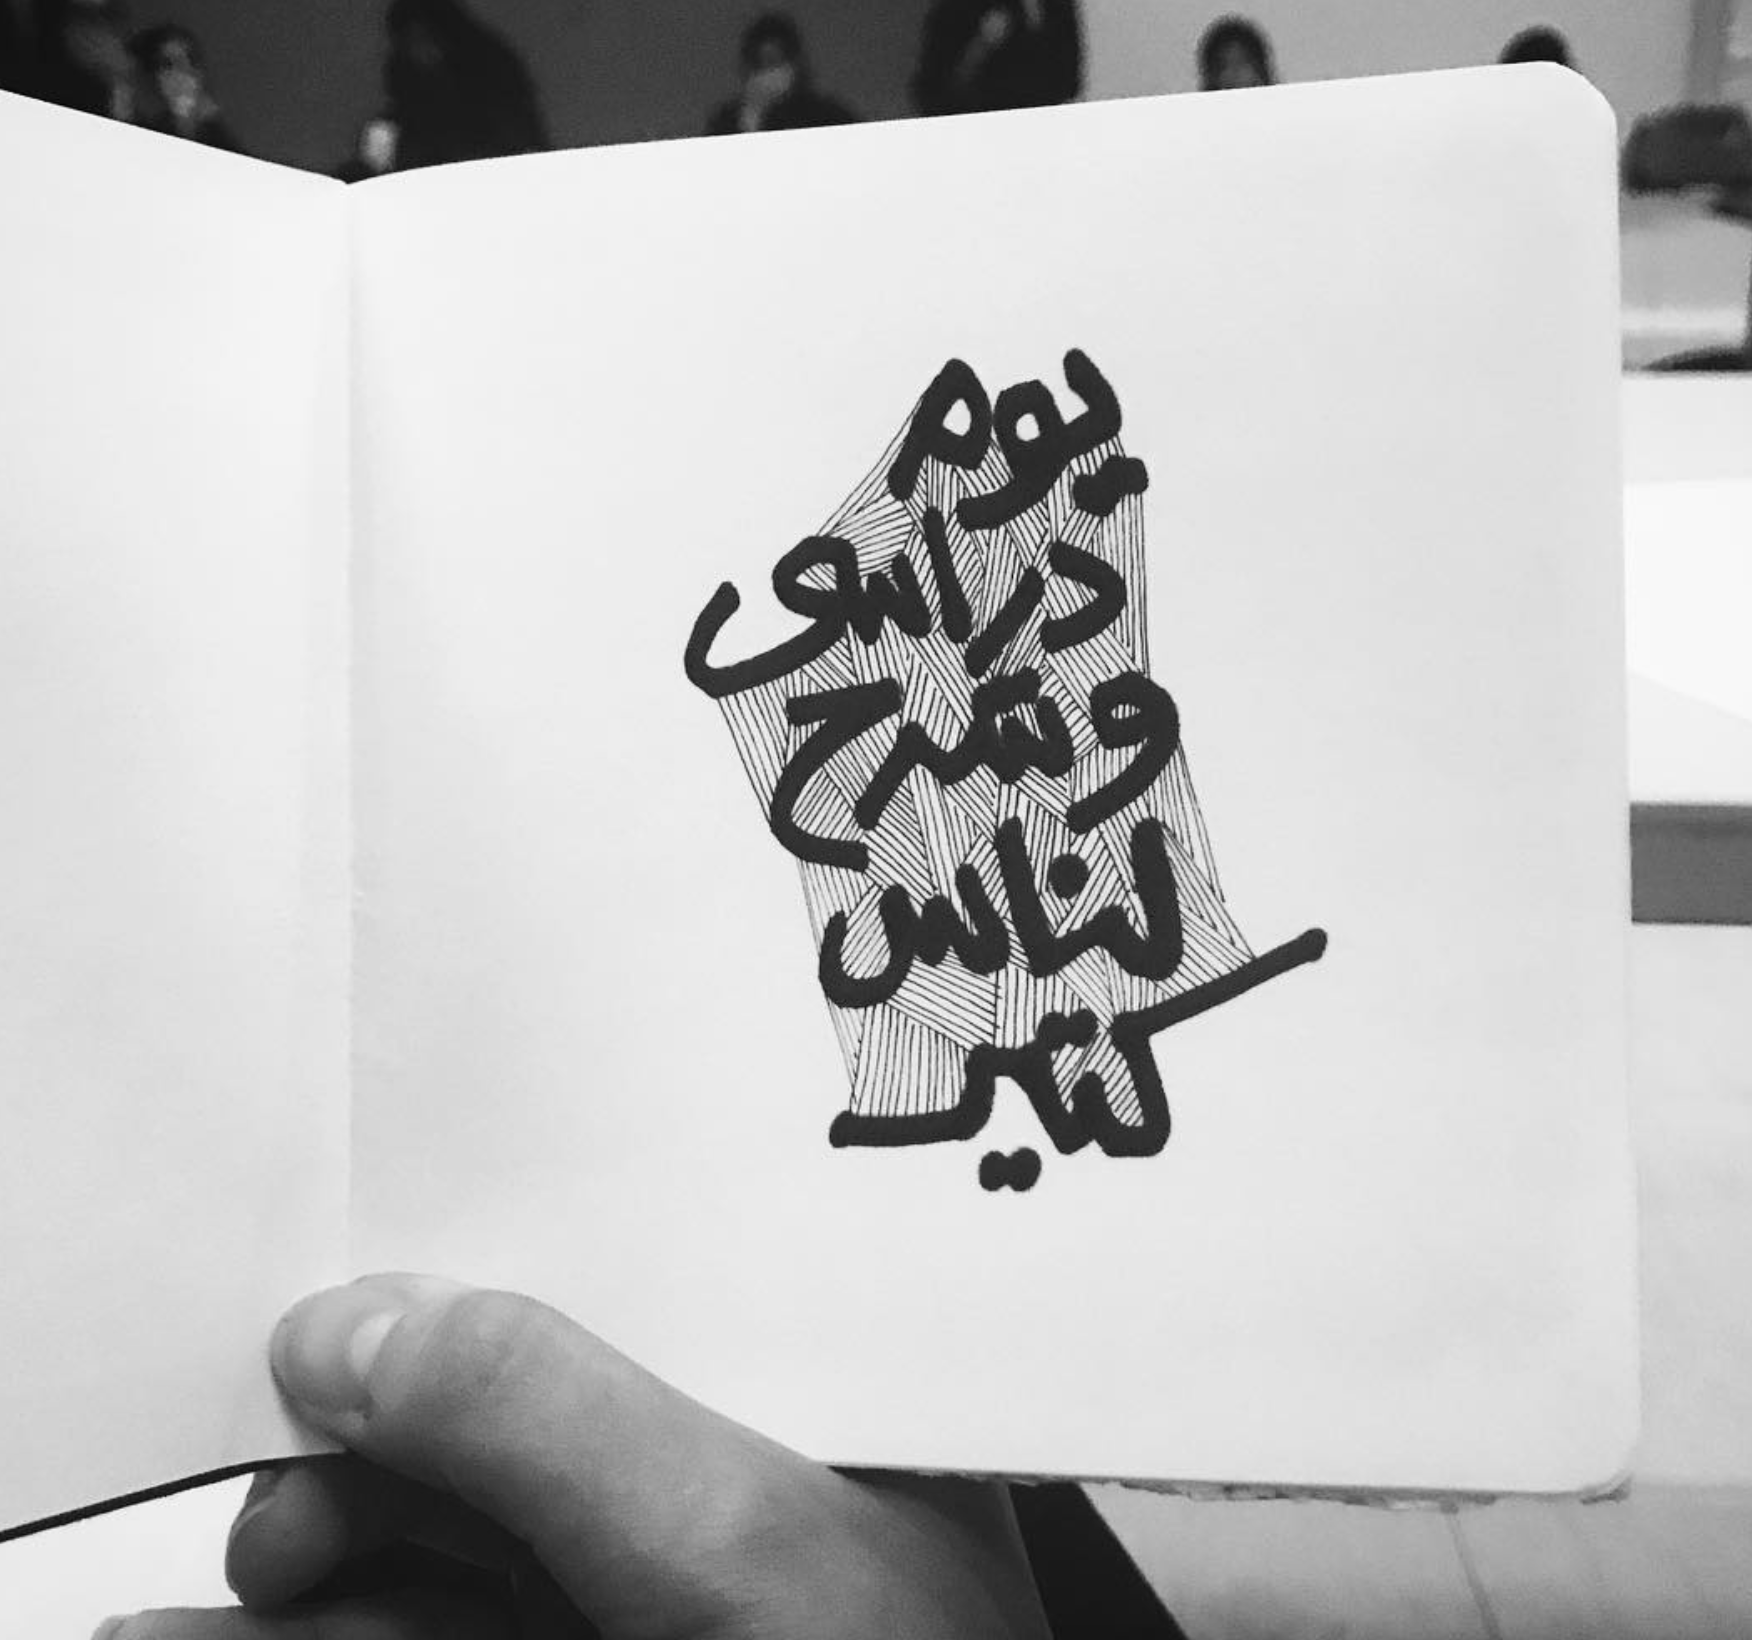 يوم
دراسى
وشرح
لناس
كتير